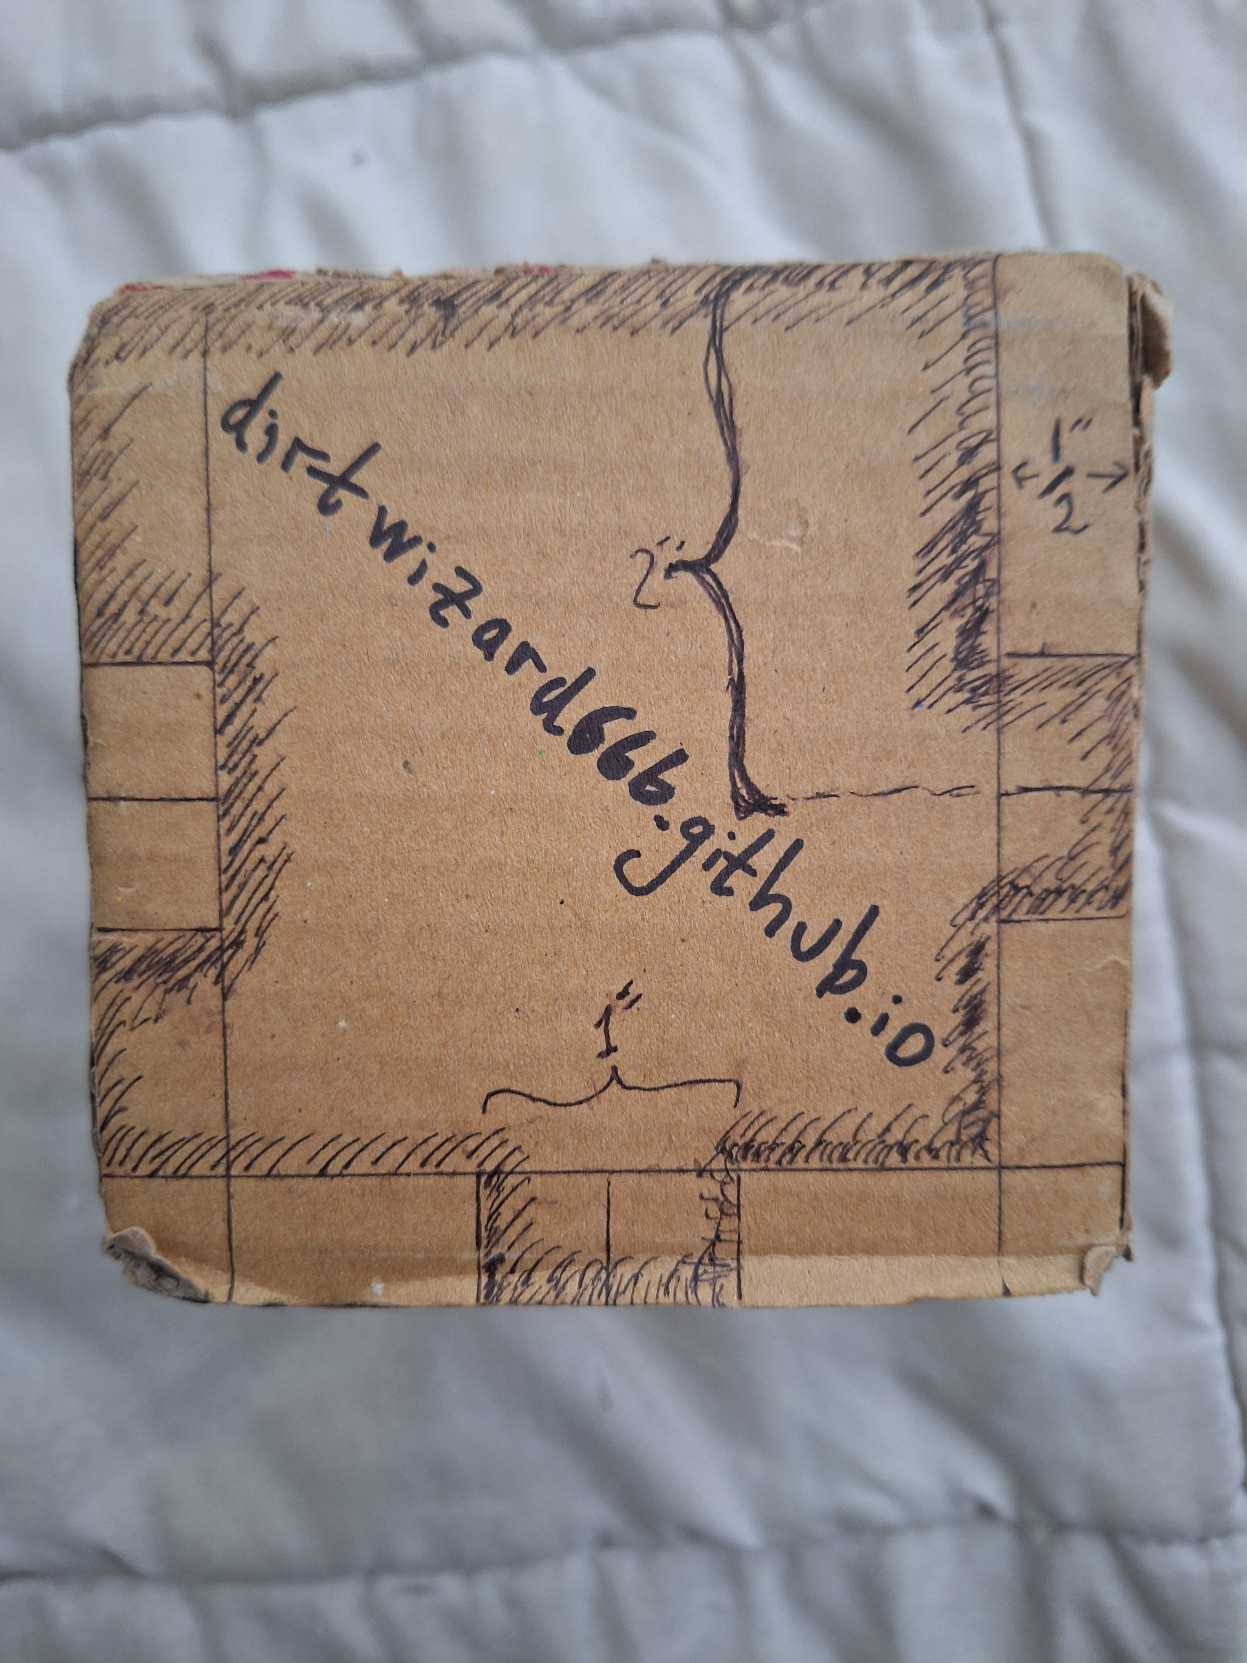 dirtwizard666.github.io
1"
/2
2"
1"